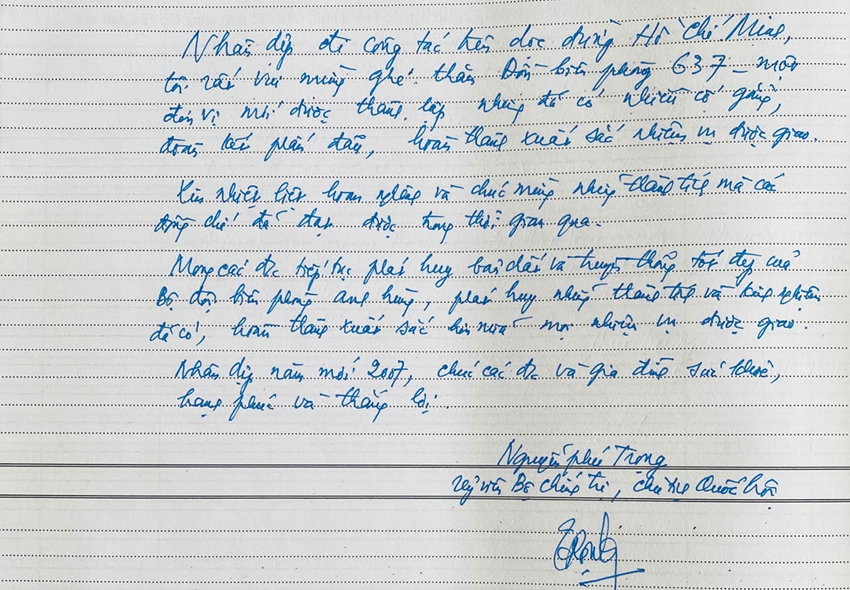 Nhân dịp đi công tác trên dọc đường Hồ Chí Minh,
tôi rất vui mừng ghé thăm Đồn biên phòng 637 - một
đơn vị mới được thành lập nhưng đã có nhiều cố gắng,
đoàn kết phấn đấu, hoàn thành xuất sắc nhiệm vụ được giao.
Xin nhiệt liệt hoan nghênh và chúc mừng những thành tích mà các
đồng chí đã đạt được trong thời gian qua.
Mong các đc tiếp tục phát huy bản chất và truyền thống tốt đẹp của
Bộ đội biên phòng anh hùng, phát huy những thành tích và kinh nghiệm
đã có, hoàn thành xuất sắc hơn nữa mọi nhiệm vụ được giao.
Nhân dịp năm mới 2007, chúc các đc và gia đình sức khoẻ,
hạnh phúc và thắng lợi.
Nguyễn Phú Trọng
Uỷ viên Bộ Chính trị, Chủ tịch Quốc hội
Trọng